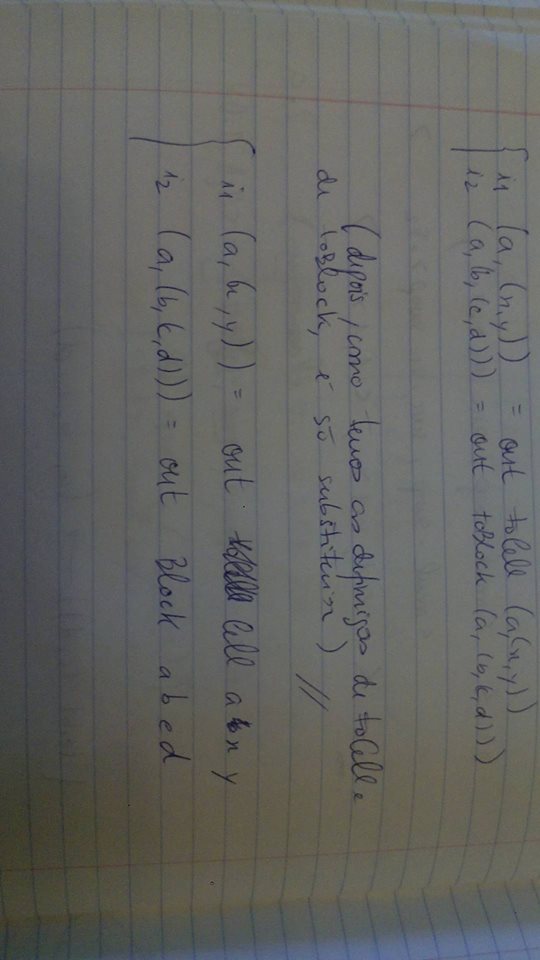 i1 (a, (x,y)) = out toCell (a(x,y))
i2 (a,(b,(c,d))) = out toBlock (a,(b,(c,d)))
(depois, como temos as definições de toCell e
de toBlock, é só substituir) //
i1 (a,(x,y)) = out Cell a x y
i2 (a,(b,(c,d))) = out Block a b c d